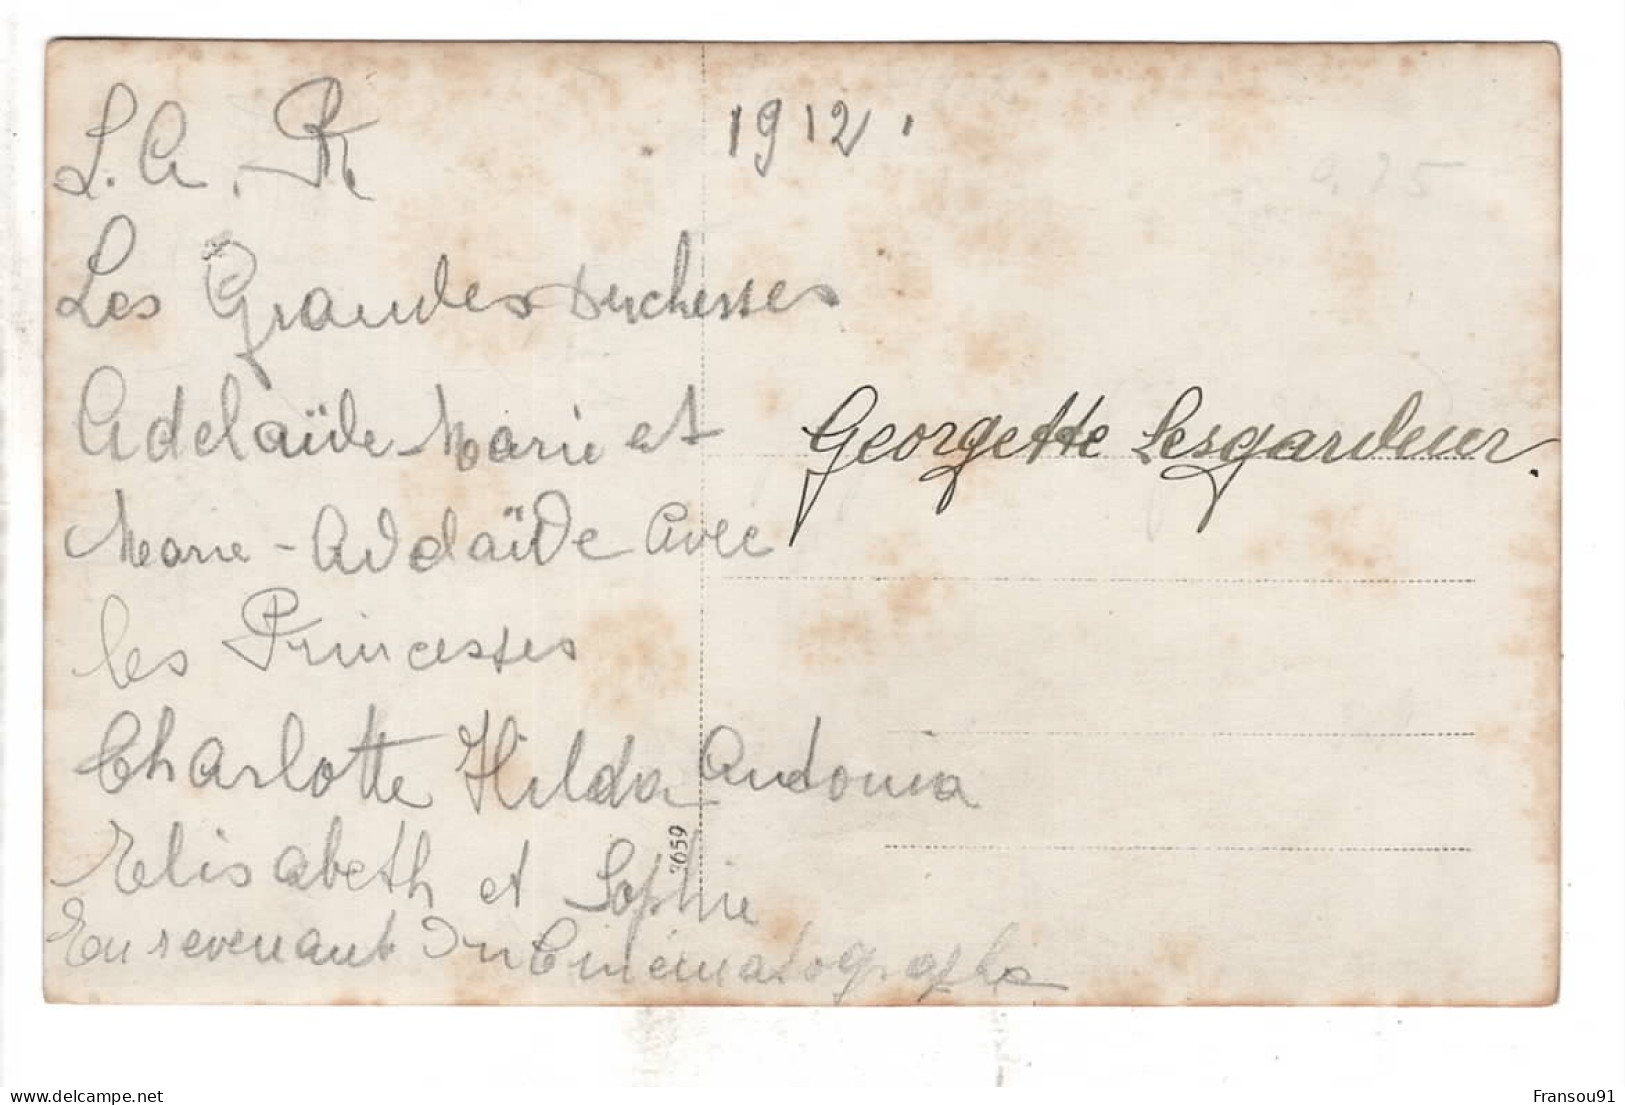 L. A. R.
1912.
Les Grandes Duchesses
Adelaïde-Marie et
Marie-Adelaïde Avec
les Princesses
Charlotte Hilda Antonia
Elisabeth et Sophie
En revenant du Cinématographe
Georgette Lesgardeur.
Fransou91